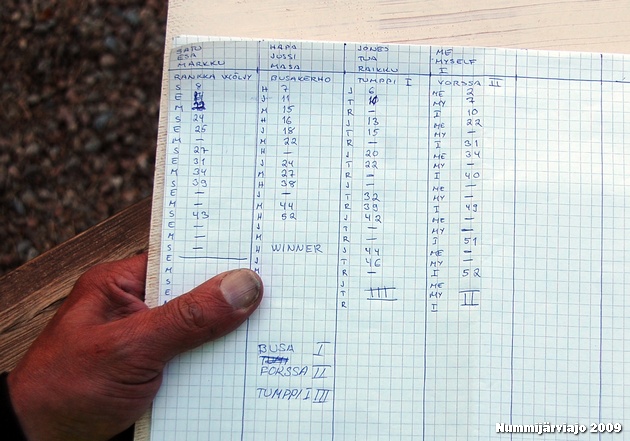 SATU
ESA
MARKKU
RANKKA
S 8
E
M 22
S 24
E 25
M —
S 27
E 31
M 34
S 39
E —
M —
S 43
E —
M —
S —
E
M
S
E
HAPA
JUSSI
MASA
BUSAKERHO
H 7
J 11
M 15
H 16
J 18
M 22
H —
J 24
M 27
H 38
J —
M 44
H 52
J
M
H WINNER
J
M
JONES
TUA
RAIKKU
TUMPPI I
J 6
T 10
R —
J 13
T 15
R —
J 20
T 22
R —
J —
T 32
R 39
J 42
T —
R —
J 44
T 46
R —
J
T III
R
ME
MYSELF
I
VORSSA II
ME 2
MY 7
I 10
ME 22
MY —
I 31
ME 34
MY —
I 40
ME —
MY —
I 49
ME —
MY —
I 51
ME —
MY —
I 52
ME
MY II
I
BUSA I
FORSSA II
TUMPPI I III
Nummijärviajo 2009